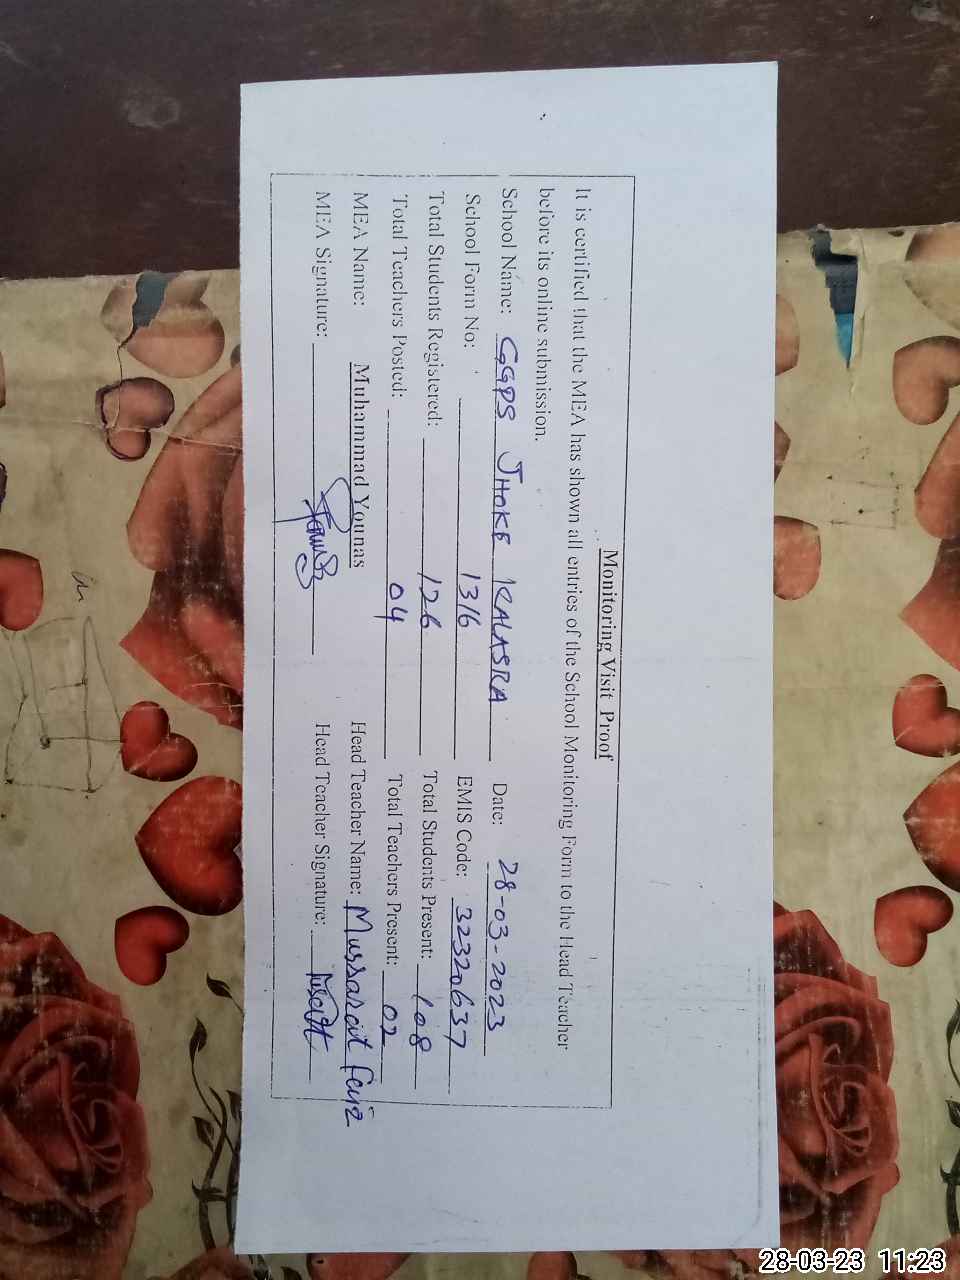 Monitoring Visit Proof
It is certified that the MEA has shown all entries of the School Monitoring Form to the Head Teacher
before its online submission.
School Name: GGPS JHOKE KALASRA Date: 28-03-2023
School Form No: 1316 EMIS Code: 32320637
Total Students Registered: 126 Total Students Present: 108
Total Teachers Posted: 04 Total Teachers Present: 02
MEA Name: Muhammad Younas Head Teacher Name: Mussarat
MEA Signature: Head Teacher Signature:
28-03-23 11:23